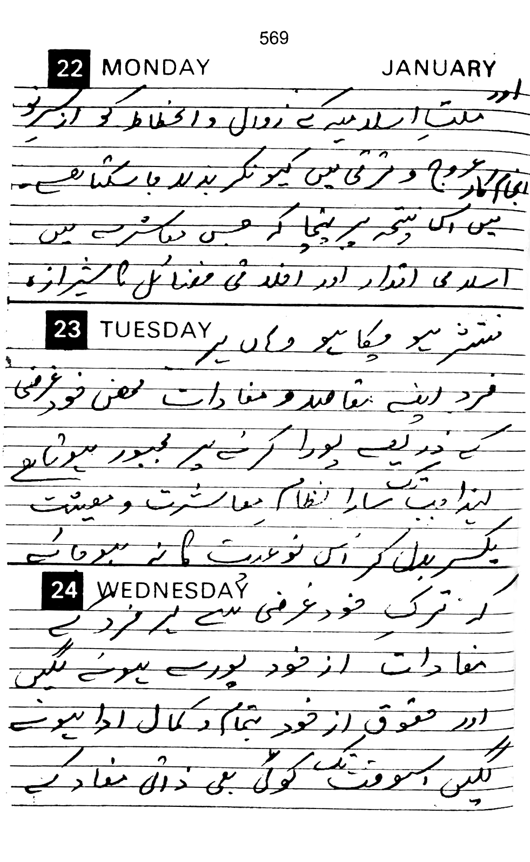 569
22 MONDAY JANUARY
ملتِ اسلامیہ کے زوال و انحطاط کو از سرِ نو اور
انجام کار عروج و ترقی میں کیونکر بدلا جا سکتا ہے۔
میں اس نتیجہ پر پہنچا کہ جس معاشرے میں
اسلامی اقدار اور اخلاقی فضائل کا شیرازہ
23 TUESDAY منتشر ہو چکا ہو وہاں ہر
فرد اپنے مقاصد و مفادات محض خود غرضی
کے ذریعے پورا کرنے پر مجبور ہوتا ہے
لہذا جب تک سارا نظام معاشرت و معیشت
یکسر بدل کر اس نوعیت کا نہ ہو جائے
24 WEDNESDAY
کہ ترکِ خود غرضی سے ہر فرد کے
مفادات از خود پورے ہونے لگیں
اور حقوق از خود بتمام و کمال ادا ہونے
لگیں اسوقت تک کوئی بھی ذاتی مفاد کے